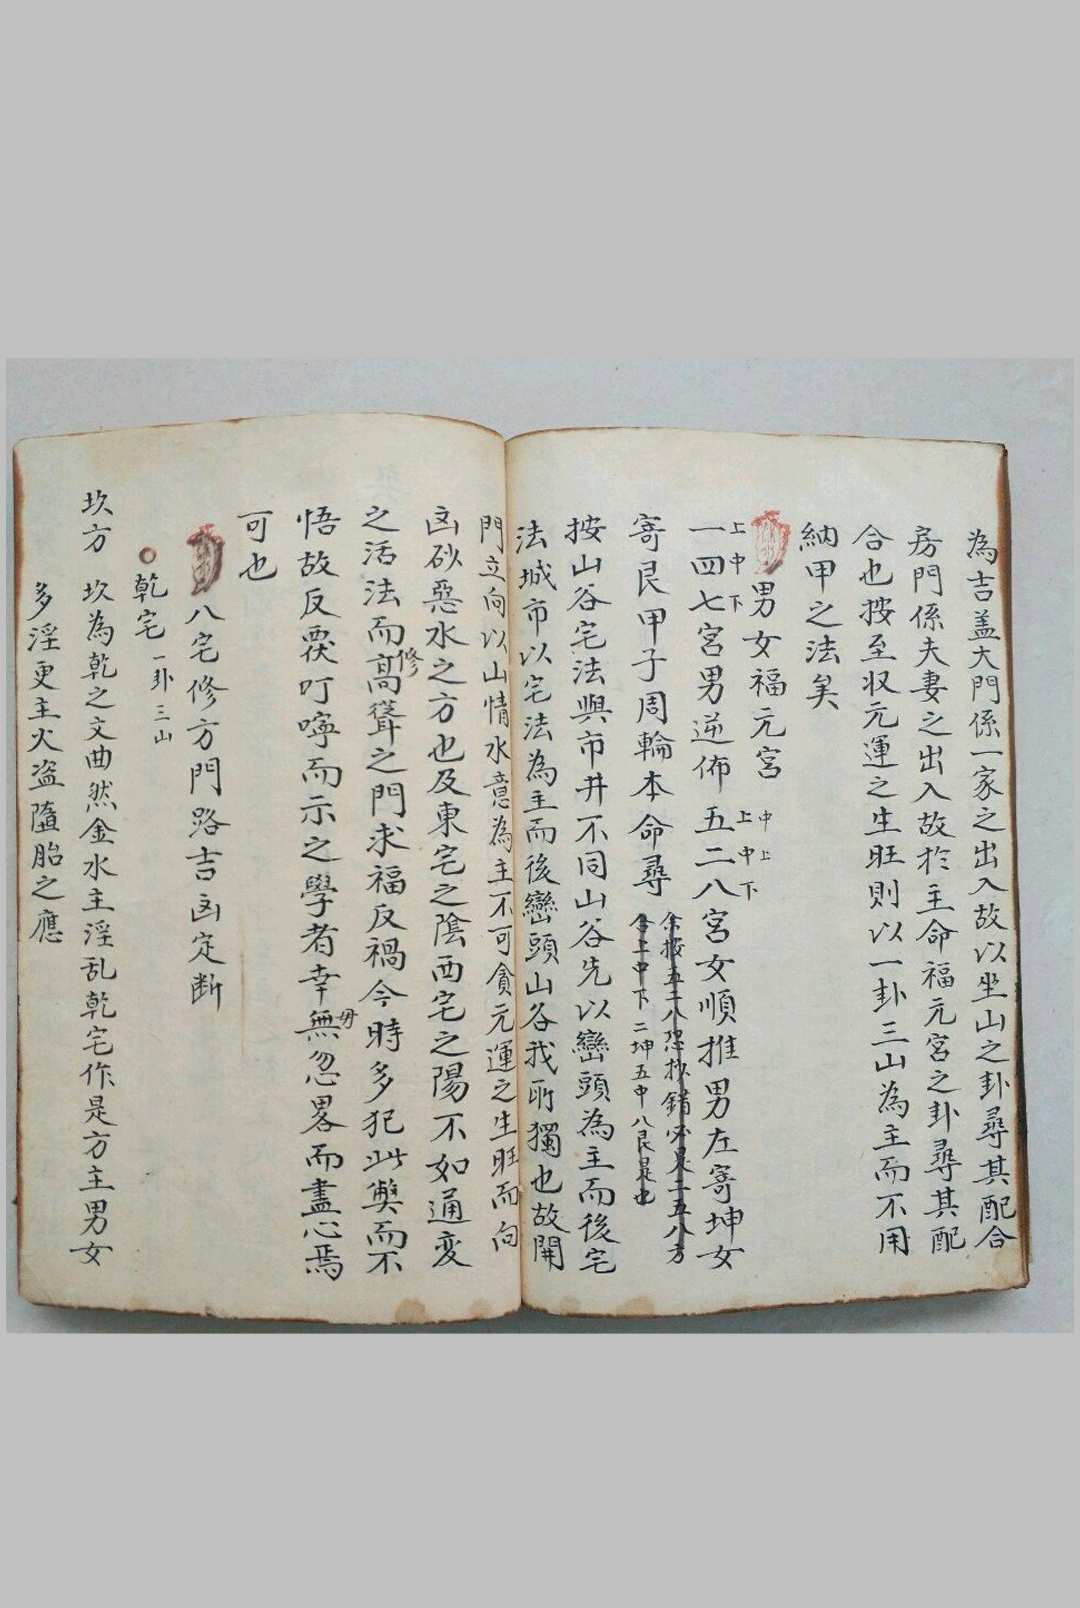 為吉盖大門係一家之出入故以坐山之卦尋其配合
房門係夫妻之出入故於主命福元宮之卦尋其配
合也按至収元運之生旺則以一卦三山為主而不用
納甲之法矣
男女福元宮
上中下
一四七宮男逆佈五二八宮女順推男左寄坤女
中上
上中下
寄艮甲子周輪本命尋
余按五二八恐抄錯必是二五八方
合上中下二坤五中八艮是也
按山谷宅法與市井不同山谷先以巒頭為主而後宅
法城市以宅法為主而後巒頭山谷我所獨也故開
門立向以山情水意為主不可貪元運之生旺而向
凶砂惡水之方也及東宅之陰西宅之陽不如通変
之活法而高聳之門求福反禍今時多犯此獘而不
修
悟故反覆叮嚀而示之學者幸無忽畧而盡心焉
毋
可也
八宅修方門路吉凶定断
乾宅一卦三山
坎方 坎為乾之文曲然金水主淫乱乾宅作是方主男女
多淫更主火盜墮胎之應